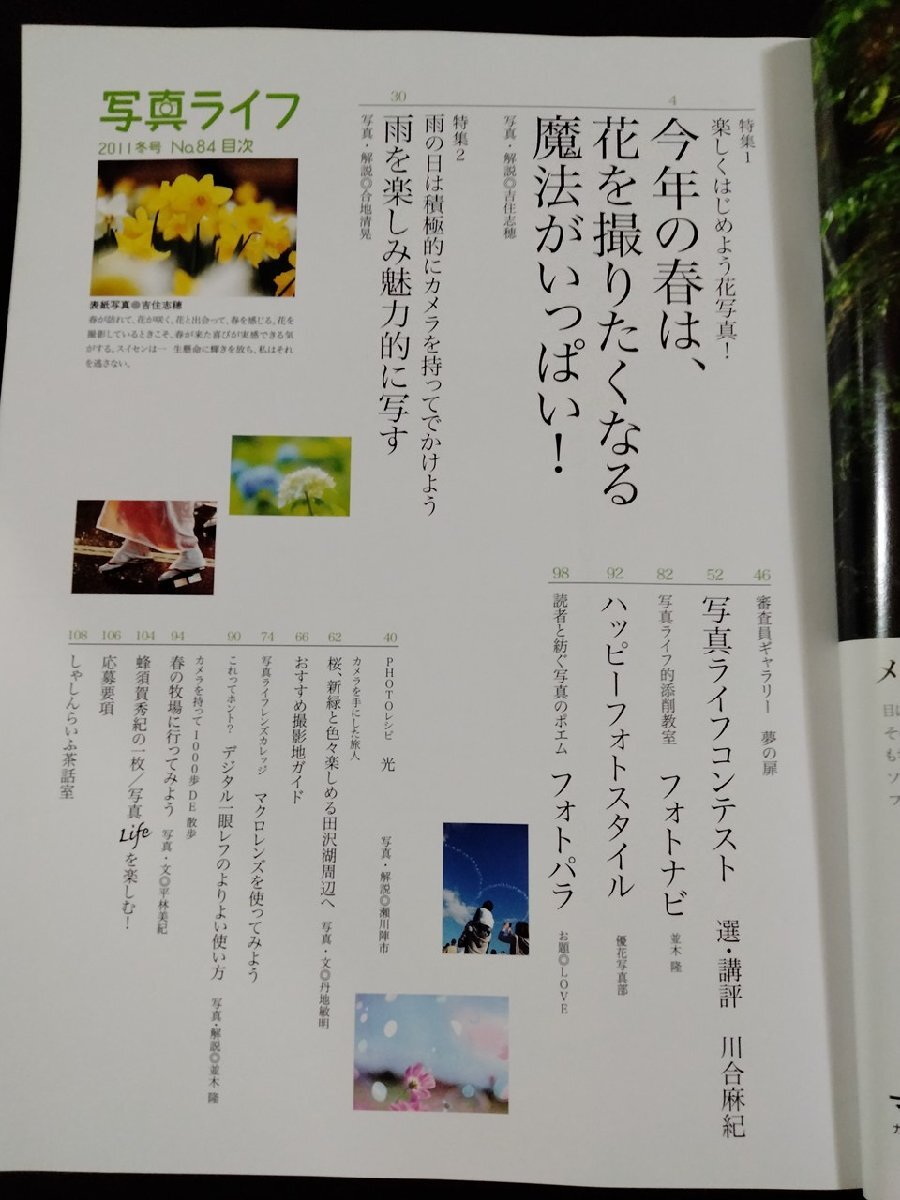 写真ライフ
2011冬号 No.84 目次
表紙写真◎吉住志穂
春が訪れて、花が咲く。花と出合って、春を感じる。花を
撮影しているときこそ、春が来た喜びが実感できる気
がする。スイセンは一生懸命に輝きを放ち、私はそれ
を逃さない。
4
特集1
楽しくはじめよう花写真！
今年の春は、
花を撮りたくなる
魔法がいっぱい！
写真・解説◎吉住志穂
30
特集2
雨の日は積極的にカメラを持ってでかけよう
雨を楽しみ魅力的に写す
写真・解説◎合地清晃
46
審査員ギャラリー 夢の扉
52
写真ライフコンテスト 選・講評 川合麻紀
82
写真ライフ的添削教室 フォトナビ 並木 隆
92
ハッピーフォトスタイル 優花写真部
98
読者と紡ぐ写真のポエム フォトパラ お題◎LOVE
40
PHOTOレシピ 光 写真・解説◎瀬川陣市
62
カメラを手にした旅人
桜、新緑と色々楽しめる田沢湖周辺へ 写真・文◎丹地敏明
66
おすすめ撮影地ガイド
74
写真ライフレンズカレッジ マクロレンズを使ってみよう
90
これってホント？ デジタル一眼レフのよりよい使い方 写真・解説◎並木 隆
94
カメラを持って1000歩DE散歩
春の牧場に行ってみよう 写真・文◎平林美紀
104
蜂須賀秀紀の一枚／写真Lifeを楽しむ！
106
応募要項
108
しゃしんらいふ茶話室